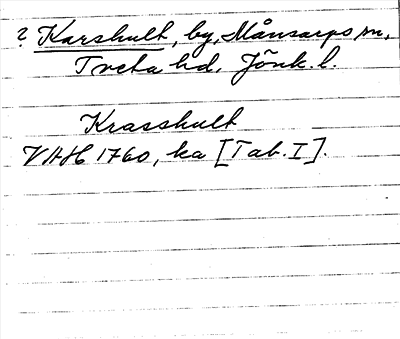 ? Karshult, by, Månsarps sn,
Tveta hd, Jönk. l.
Krasshult
VAH 1760, ka [Tab. I].